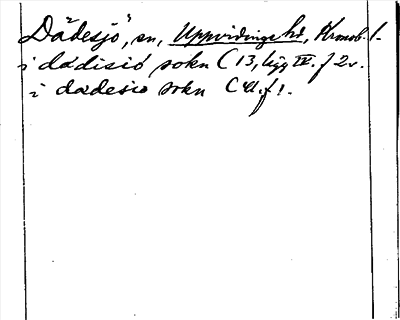 Dädesjö, sn, Uppvidinge hd, Kronob. l.
i dadisiö sokn C 13, lägg IV. f 2v.
i dadesio sokn C 41. f 1.